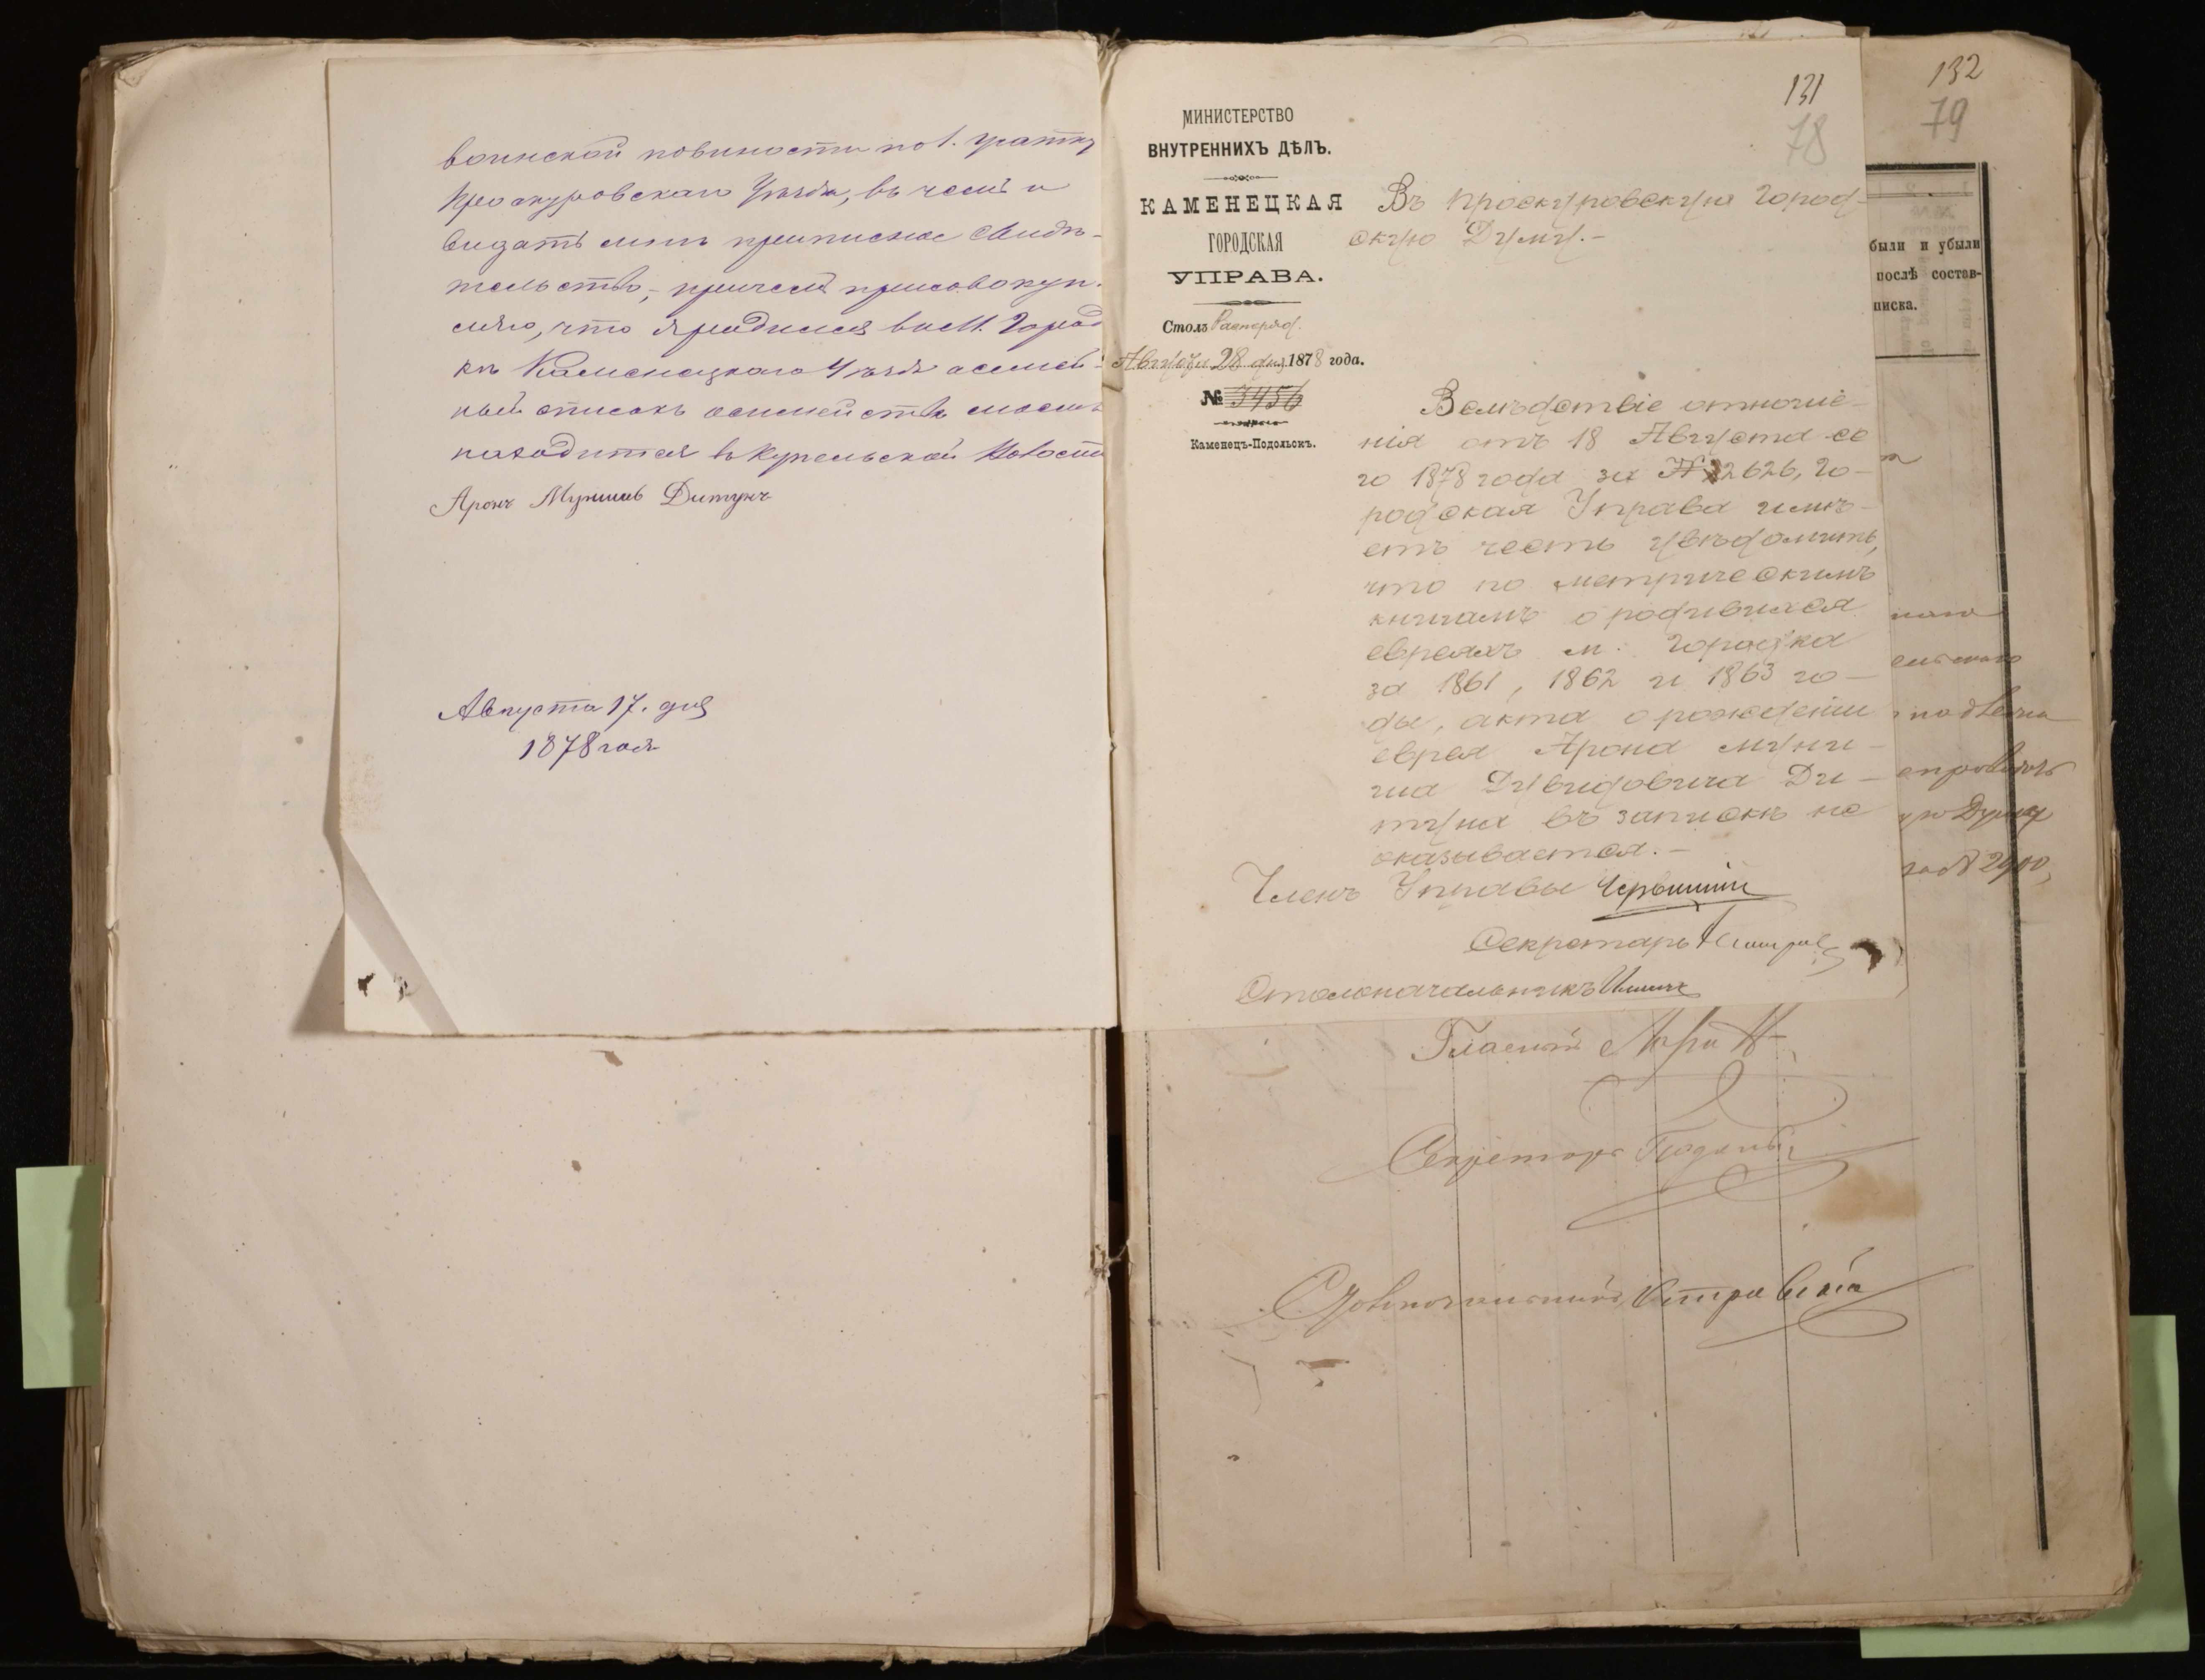 воинской повиности по 1. участку
Проскуровскаго Уѣзда, въ чемъ и
видать мнѣ приписное Свидѣ-
тельство, причемъ присовокуп-
ляю, что я родился въ М. Город
кѣ Каменецкаго Уѣзда а семей-
ный списокъ о семействѣ моемъ
находится в Купельской Волости
Аронъ Мунишъ Дитунъ
Августа 17. дня
1878 года
131
78
МИНИСТЕРСТВО
ВНУТРЕННИХЪ ДѢЛЪ.
КАМЕНЕЦКАЯ
ГОРОДСКАЯ
УПРАВА.
Столъ Распоряд.
Августа 28 дня 1878 года.
№ 3456
Каменецъ-Подольскъ.
Въ Проскуровскую Город-
скую Думу.-
Вслѣдствіе отноше-
нія отъ 18 Августа се
го 1878 года за № 2626, Го-
родская Управа имѣ-
етъ честь увѣдомить,
что по метрическимъ
книгамъ о родившихся
евреяхъ м. Городка
за 1861, 1862 и 1863 го-
ды, акта о рожденіи
еврея Арона Муни-
ша Дувидовича Ди-
туна въ запискѣ не
оказывается.-
Членъ Управы
Секретарь
Столоначальникъ
132
79
были и убыли
послѣ состав-
писка.
наго
ельскаго
ую Думу
за № 2900,
Гласный
Секретарь